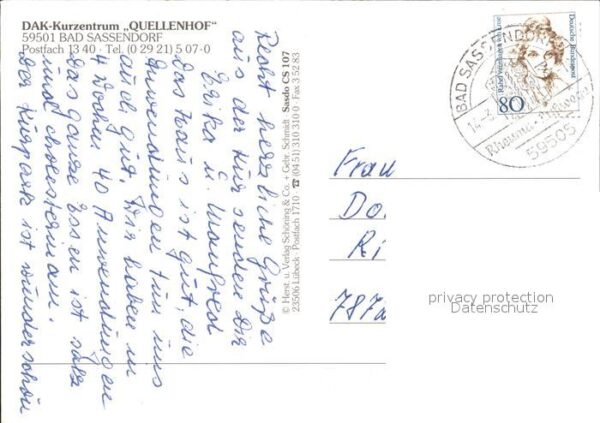 DAK-Kurzentrum „QUELLENHOF"
59501 BAD SASSENDORF
Postfach 13 40 · Tel. (0 29 21) 5 07-0
Recht herzliche Grüße
aus der Kur senden Dir
Erika u. Manfred
das Haus ist gut, die
Anwendungen tun uns
auch gut. Wir haben in
4 Wochen 40 Anwendungen
das ganze Essen ist salz
und cholesterinarm.
der Kurpark ist wunderschön
© Herst. u. Verlag Schöning & Co. + Gebr. Schmidt · Sasdo CS 107
23506 Lübeck · Postfach 1710 · ☎ (04 51) 310 310 0 · Fax 3 52 83
Deutsche Bundespost
Rahel Varnhagen von Ense
80
BAD SASSENDORF
Rheuma
59505
Frau
Do.
Ri
787a
privacy protection
Datenschutz